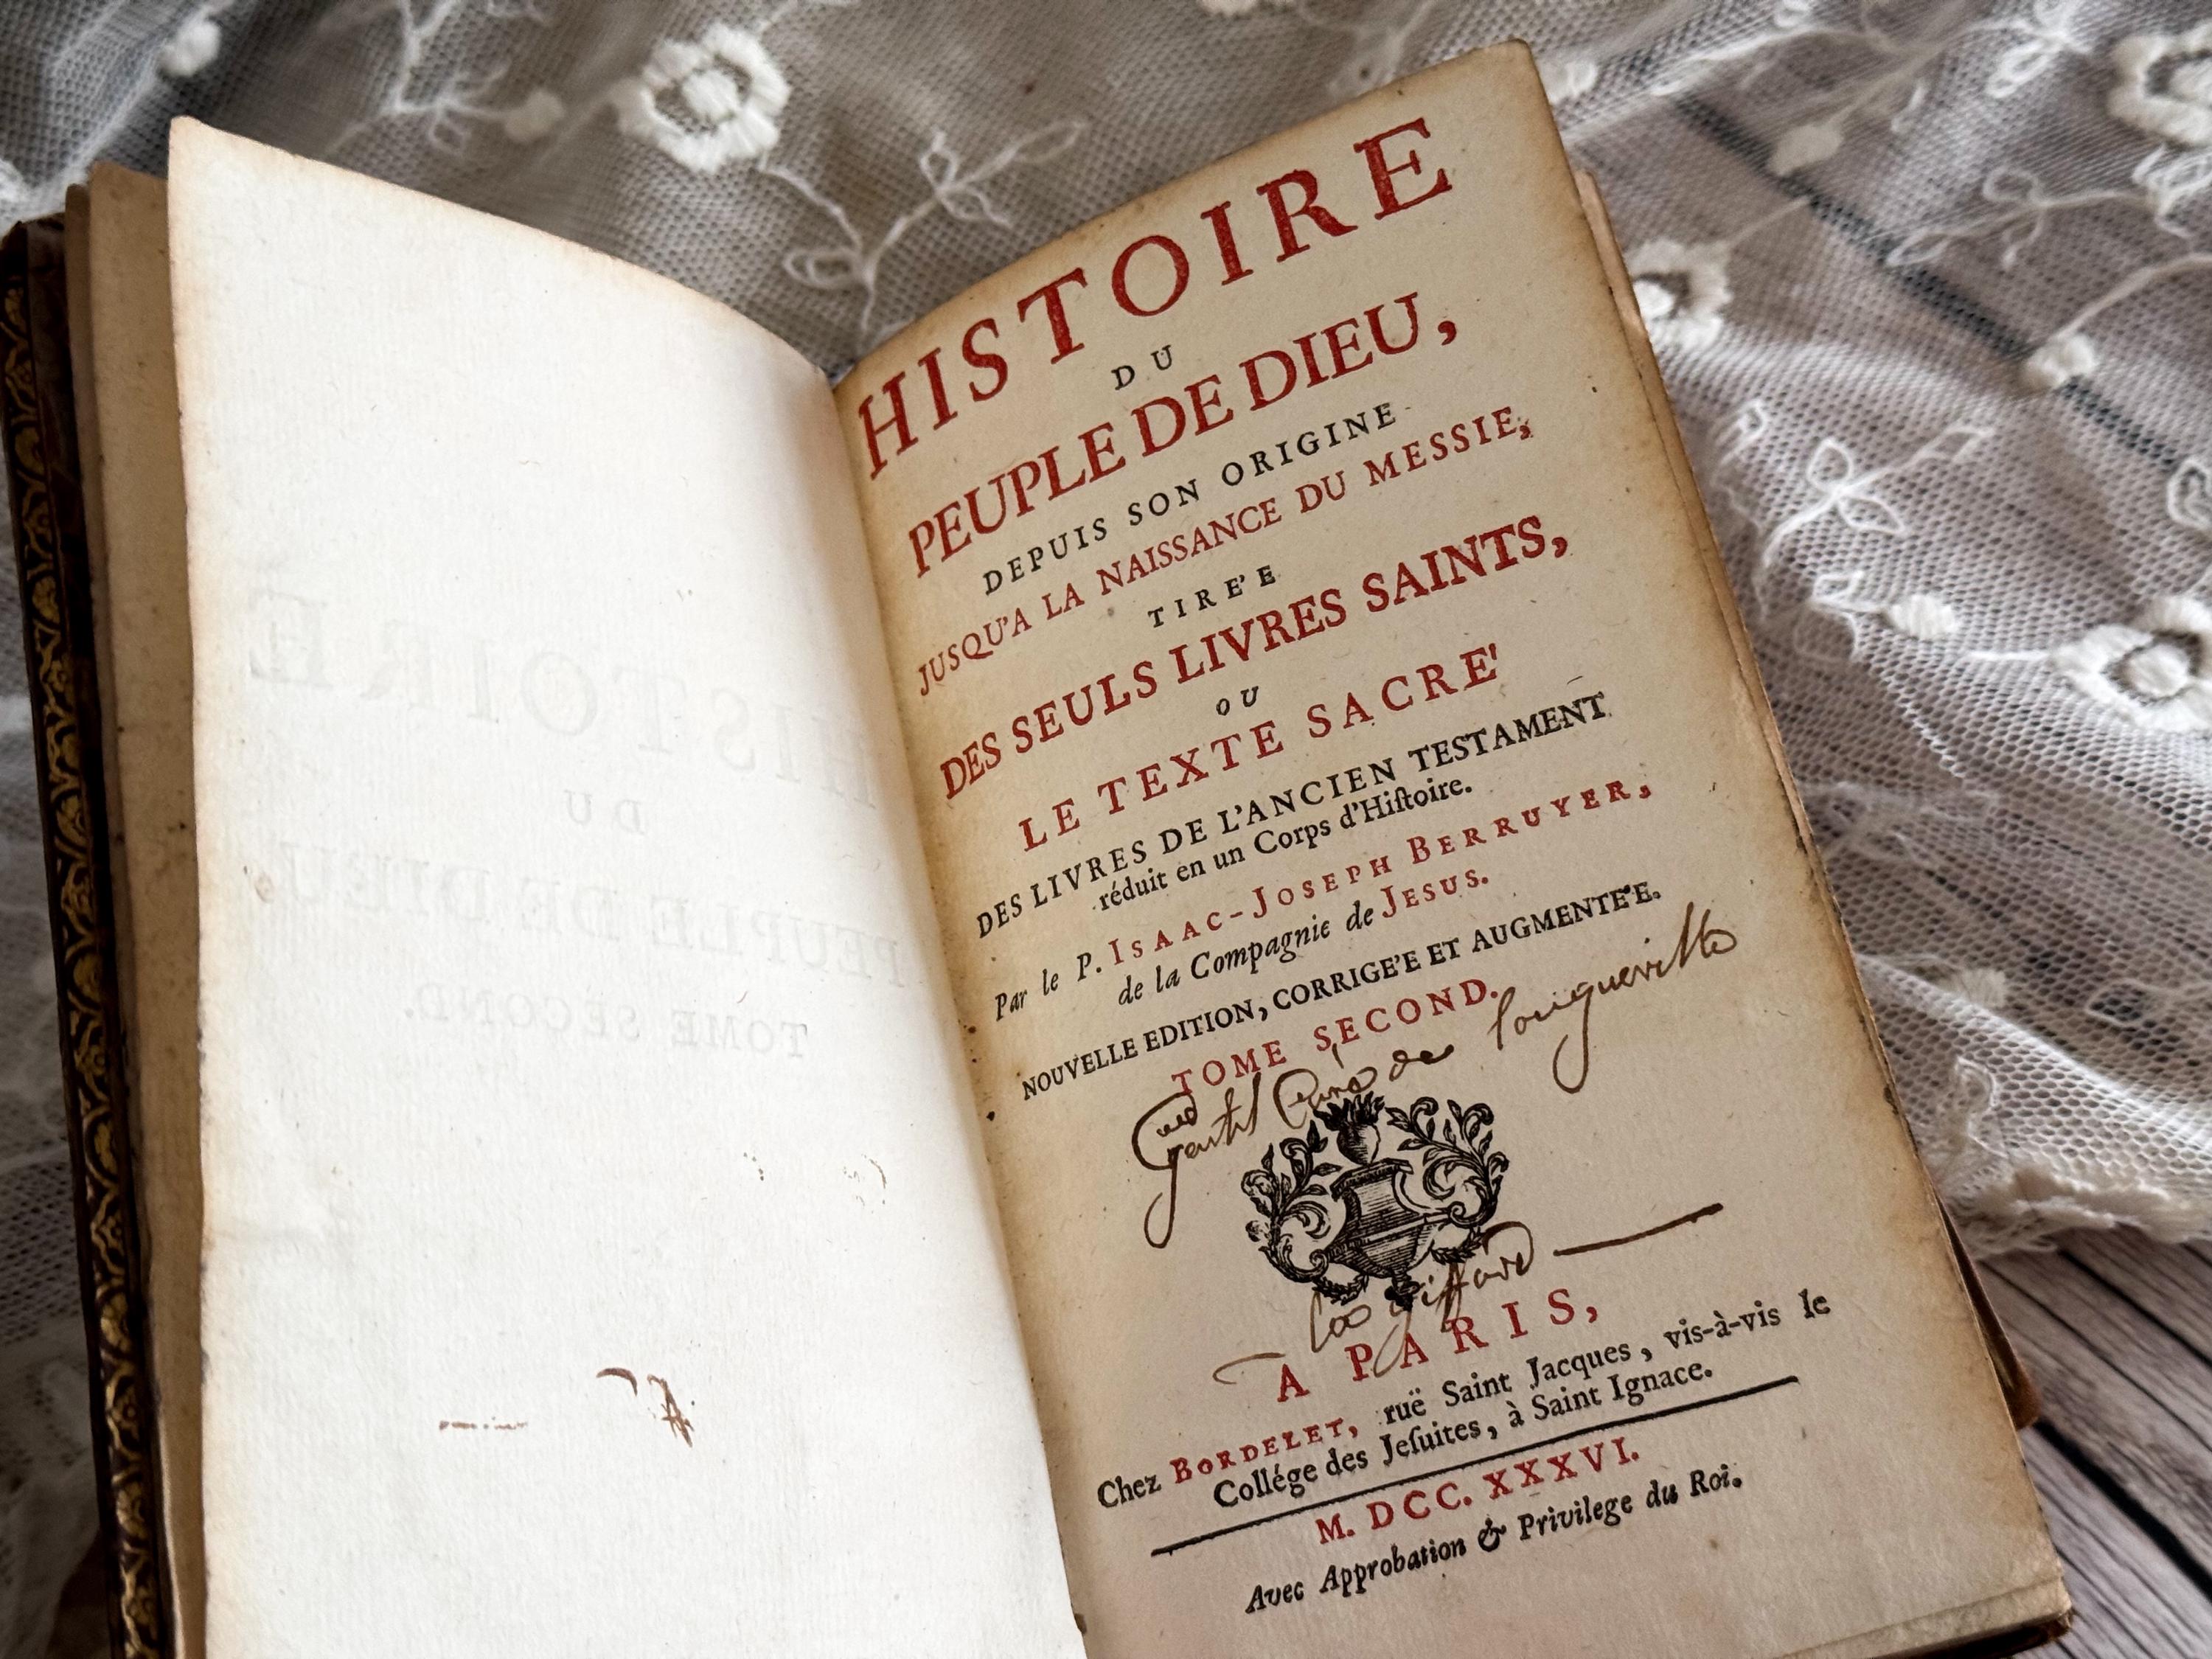 HISTOIRE
DU
PEUPLE DE DIEU
TOME SECOND.
HISTOIRE
DU
PEUPLE DE DIEU,
DEPUIS SON ORIGINE
JUSQU'A LA NAISSANCE DU MESSIE,
TIRE'E
DES SEULS LIVRES SAINTS,
OU
LE TEXTE SACRE'
DES LIVRES DE L'ANCIEN TESTAMENT
réduit en un Corps d'Hiſtoire.
Par le P. ISAAC-JOSEPH BERRUYER,
de la Compagnie de JESUS.
NOUVELLE EDITION, CORRIGE'E ET AUGMENTE'E.
TOME SECOND.
de longueville
la giffard
A PARIS,
Chez BORDELET, ruë Saint Jacques, vis-à-vis le
Collége des Jeſuites, à Saint Ignace.
M. DCC. XXXVI.
Avec Approbation & Privilege du Roi.